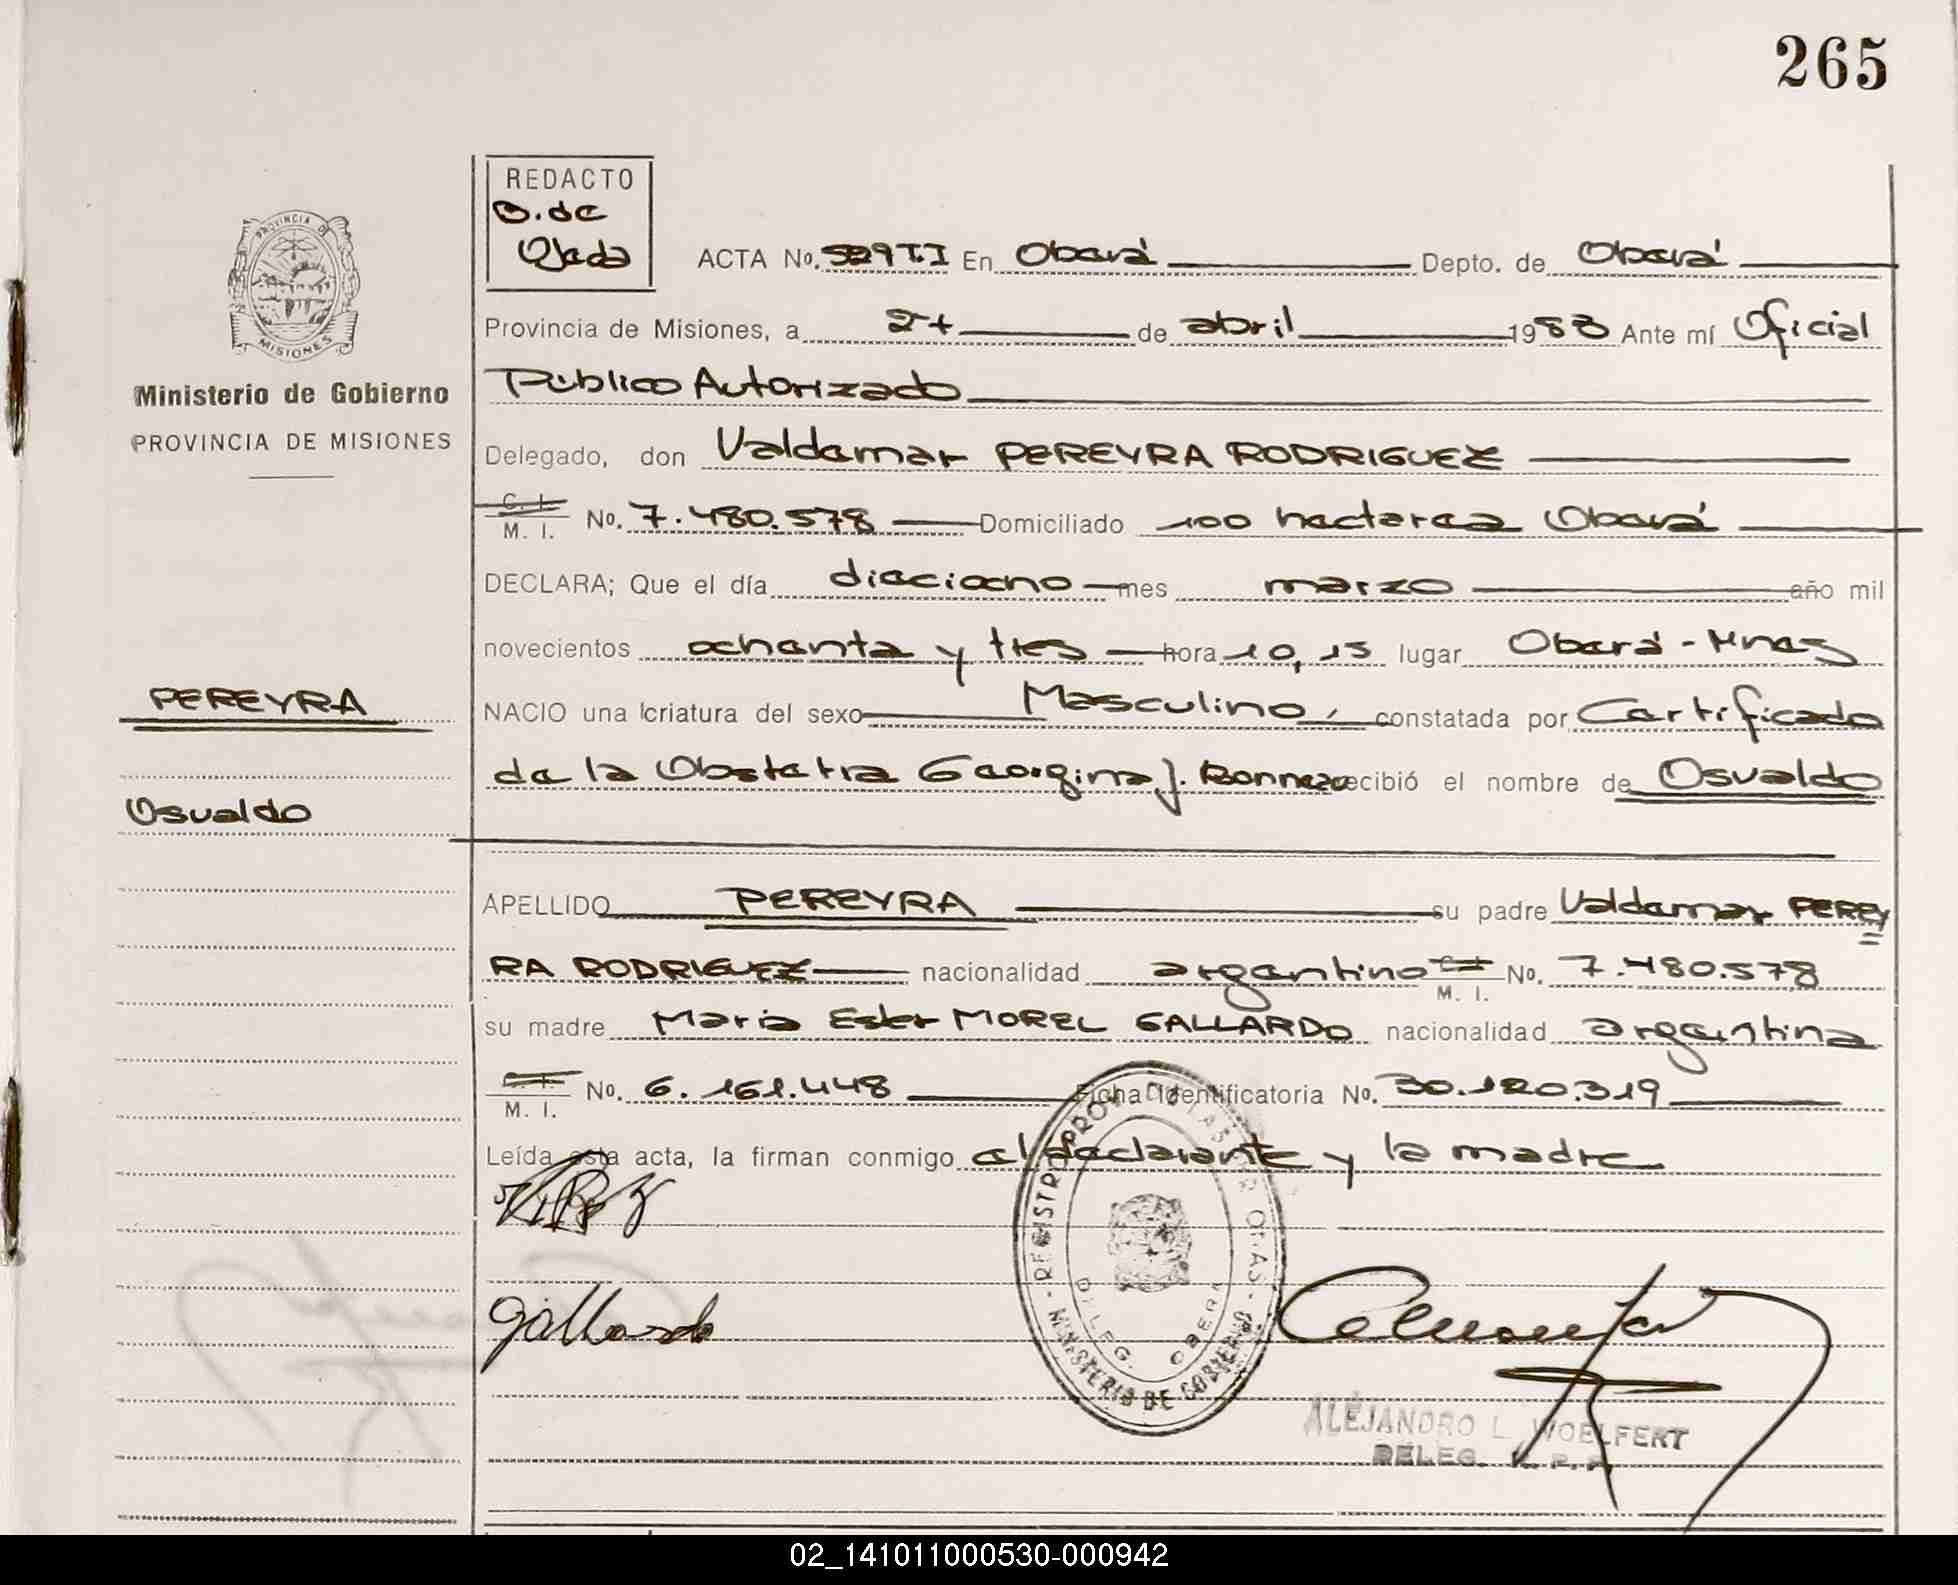 265
REDACTO
O. de
Ojeda
ACTA No. 529 T.I En Oberá Depto. de Oberá
Provincia de Misiones, a 27 de abril 1983 Ante mí Oficial
Público Autorizado
Delegado, don Valdemar PEREYRA RODRIGUEZ
C. I.
M. I. No. 7.480.578 Domiciliado 100 hectarea Oberá
DECLARA; Que el día dieciocho mes marzo año mil
novecientos ochenta y tres hora 10,15 lugar Oberá - Mnes
NACIO una criatura del sexo Masculino, constatada por Certificado
de la Obstetra Georgina J. recibió el nombre de Osvaldo
APELLIDO PEREYRA su padre Valdemar PEREY
RA RODRIGUEZ nacionalidad argentino M. I. No. 7.480.578
su madre Maria Ester MOREL GALLARDO nacionalidad argentina
M. I. No. 6.161.448 Ficha Identificatoria No. 30.120.319
Leída esta acta, la firman conmigo el declarante y la madre
PROVINCIA DE
MISIONES
Ministerio de Gobierno
PROVINCIA DE MISIONES
PEREYRA
Osvaldo
Gallardo
REGISTRO PROV. DE LAS PERSONAS
DELEG. OBERA
MINISTERIO DE GOBIERNO
ALEJANDRO L. WOELFERT
DELEG. R. P. P.
02_141011000530-000942